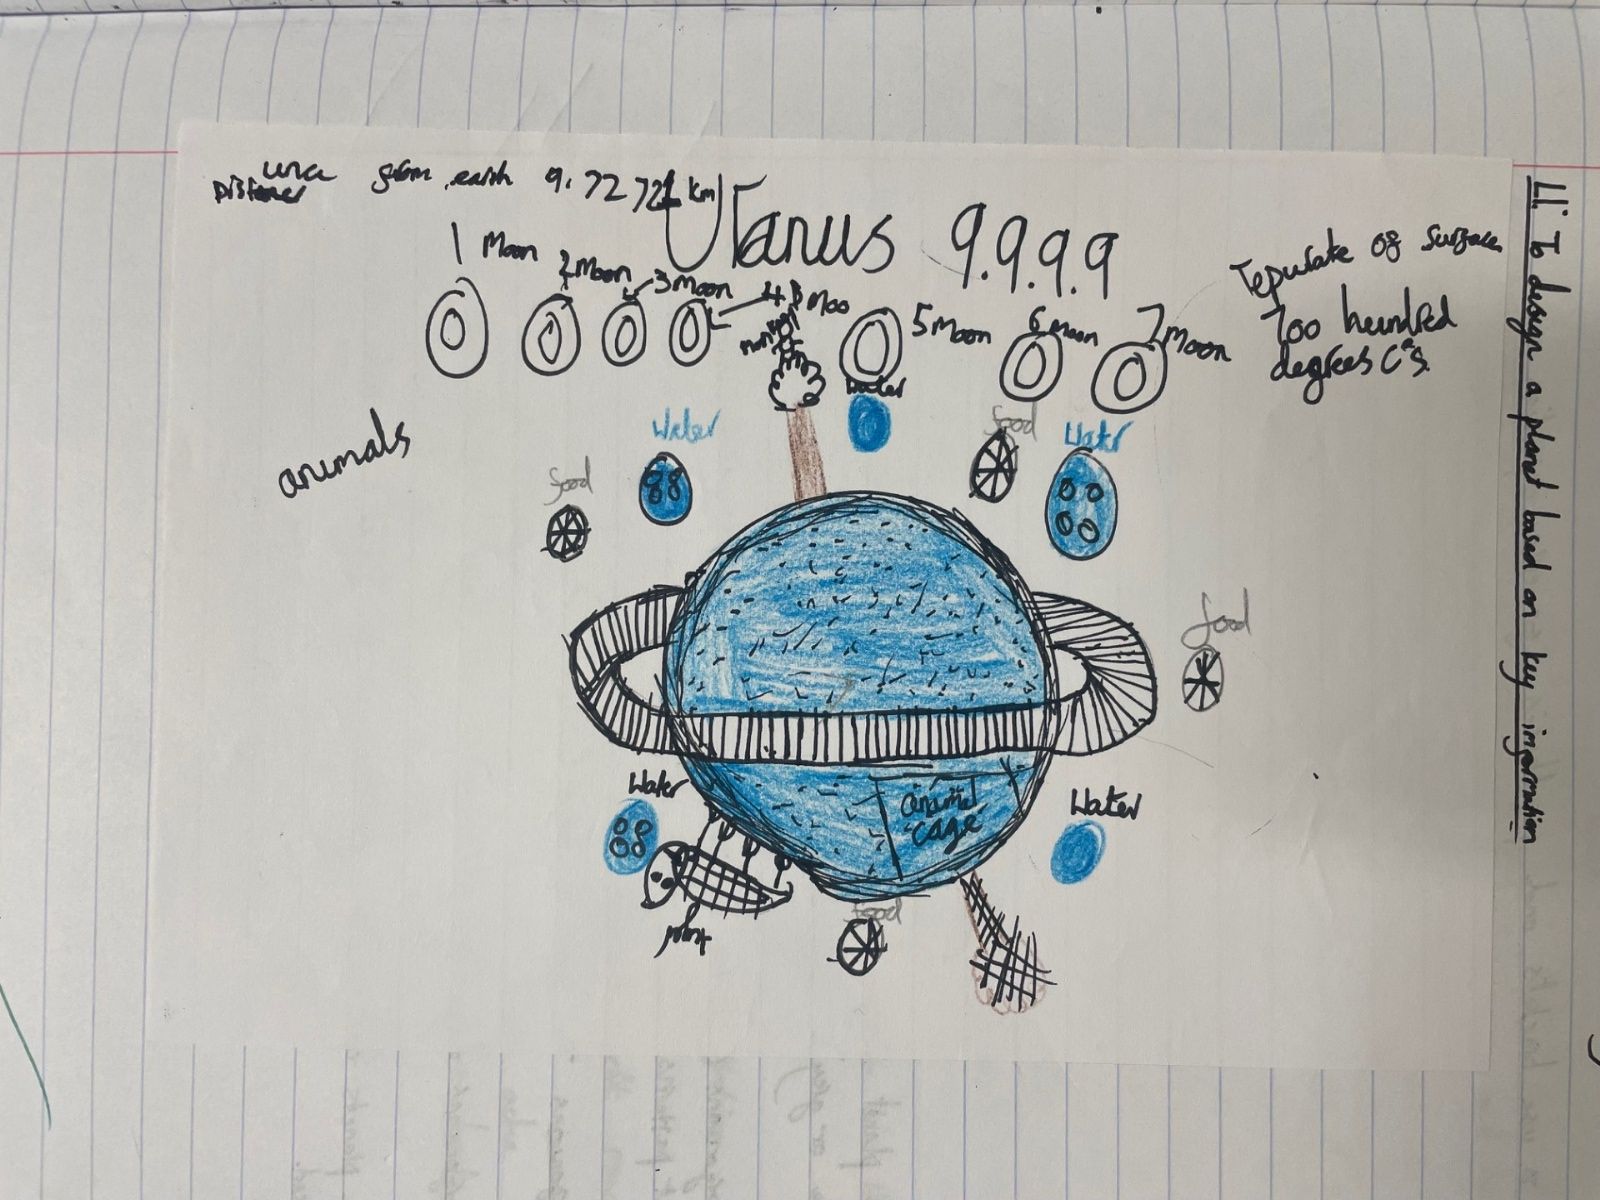 Distance from earth 9.72721 km
Utanus 9.9.9.9
1 Moon
2 Moon
3 Moon
4 Moo
5 Moon
6 Moon
7 Moon
Tepurate of surface
700 hundred
degrees C°s
animals
Water
Water
Water
food
food
food
Water
Water
food
animal
cage
LI: To design a planet based on key information